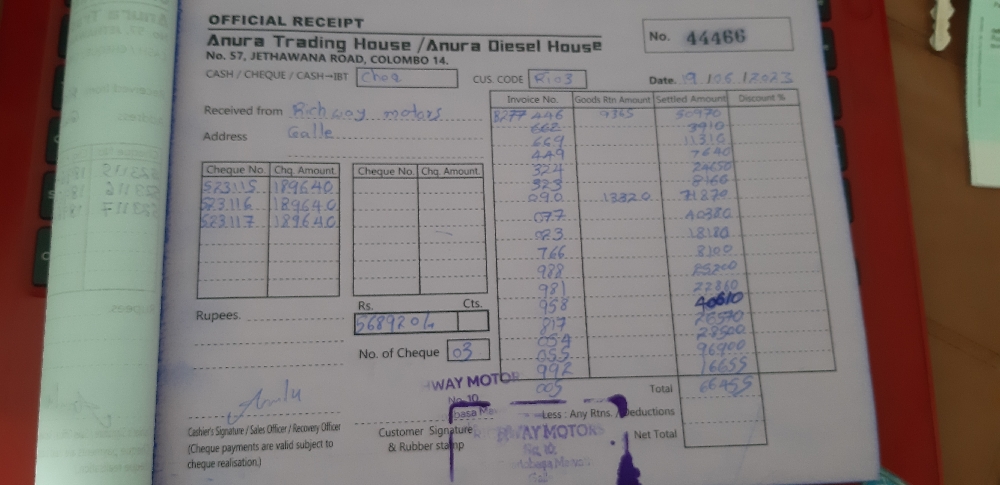 OFFICIAL RECEIPT
No. 44466
Anura Trading House /Anura Diesel House
No. 57, JETHAWANA ROAD, COLOMBO 14.
CASH / CHEQUE / CASH-IBT Choq CUS. CODE Ri03 Date. 19/06/2023
Received from Richway motors
Address Galle
Invoice No. Goods Rtn Amount Settled Amount Discount %
8277 446 9365 50970
662 3910
669 11310
449 7640
324 24650
323 8160
090 13320 71870
077 40380
023 18180
766 8100
988 25200
981 22860
958 40610
817 26570
054 28500
055 96900
992 16655
005 66455
Cheque No. Chq. Amount
523115 189640
523116 189640
523117 189640
Cheque No. Chq. Amount
Rupees.
Rs. Cts.
568920/-
No. of Cheque 03
Total
Less : Any Rtns. / Deductions
Net Total
WAY MOTOR
No. 10,
Cashier's Signature / Sales Officer / Recovery Officer
(Cheque payments are valid subject to
cheque realisation.)
Customer Signature
& Rubber stamp
WAY MOTORS